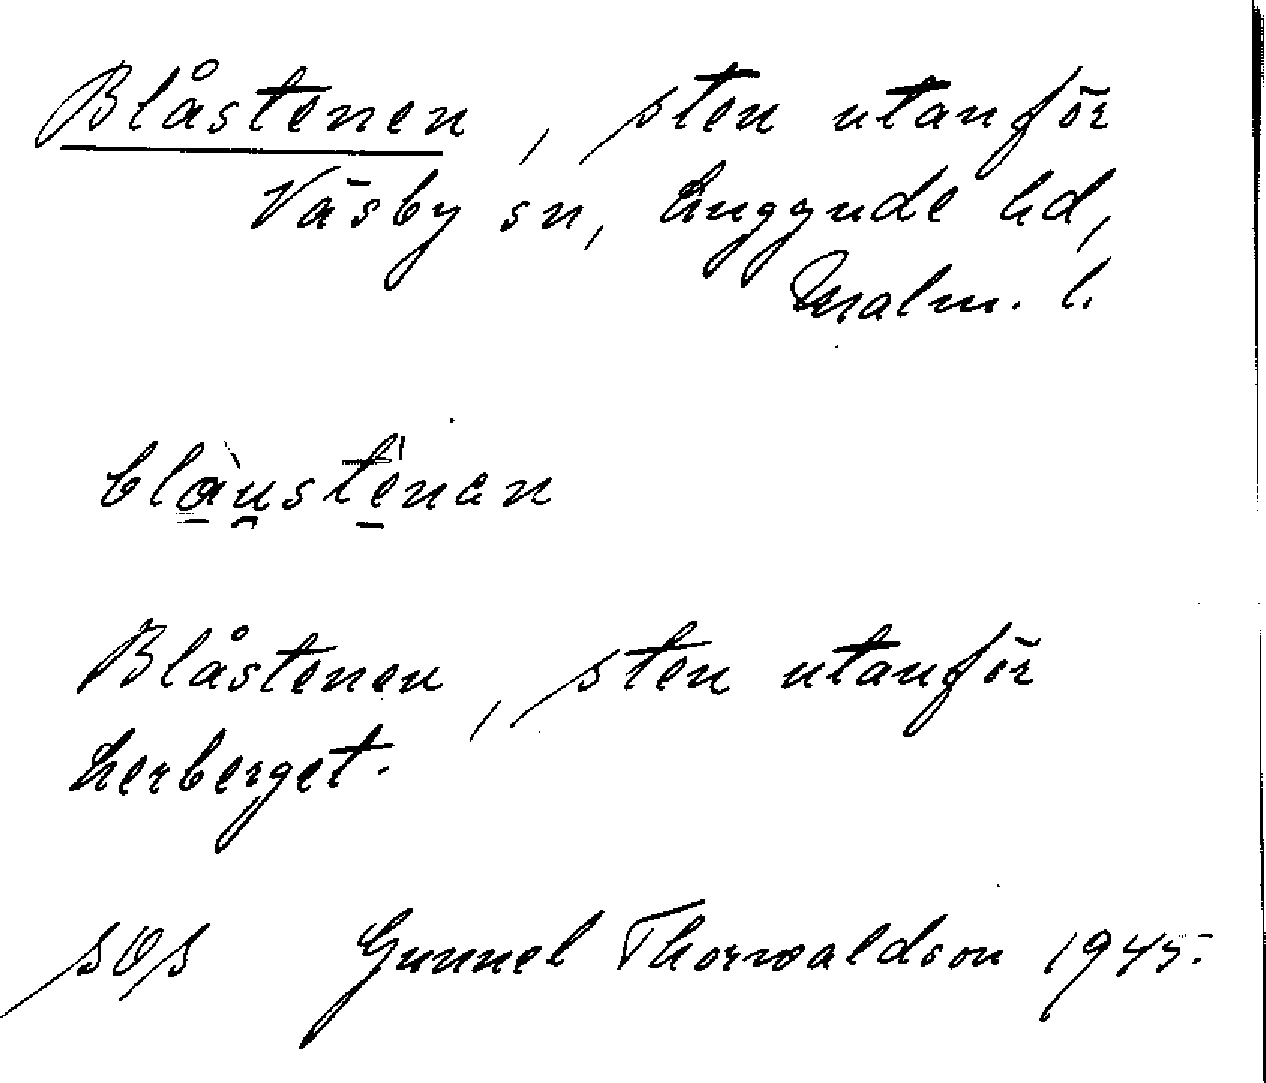 Blåstenen, sten utanför
Väsby sn, Luggude hd,
Malm. l.
blàu̯stènan
Blåstenen, sten utanför
Lerberget.
SOS Gunnel Thorwaldson 1945.